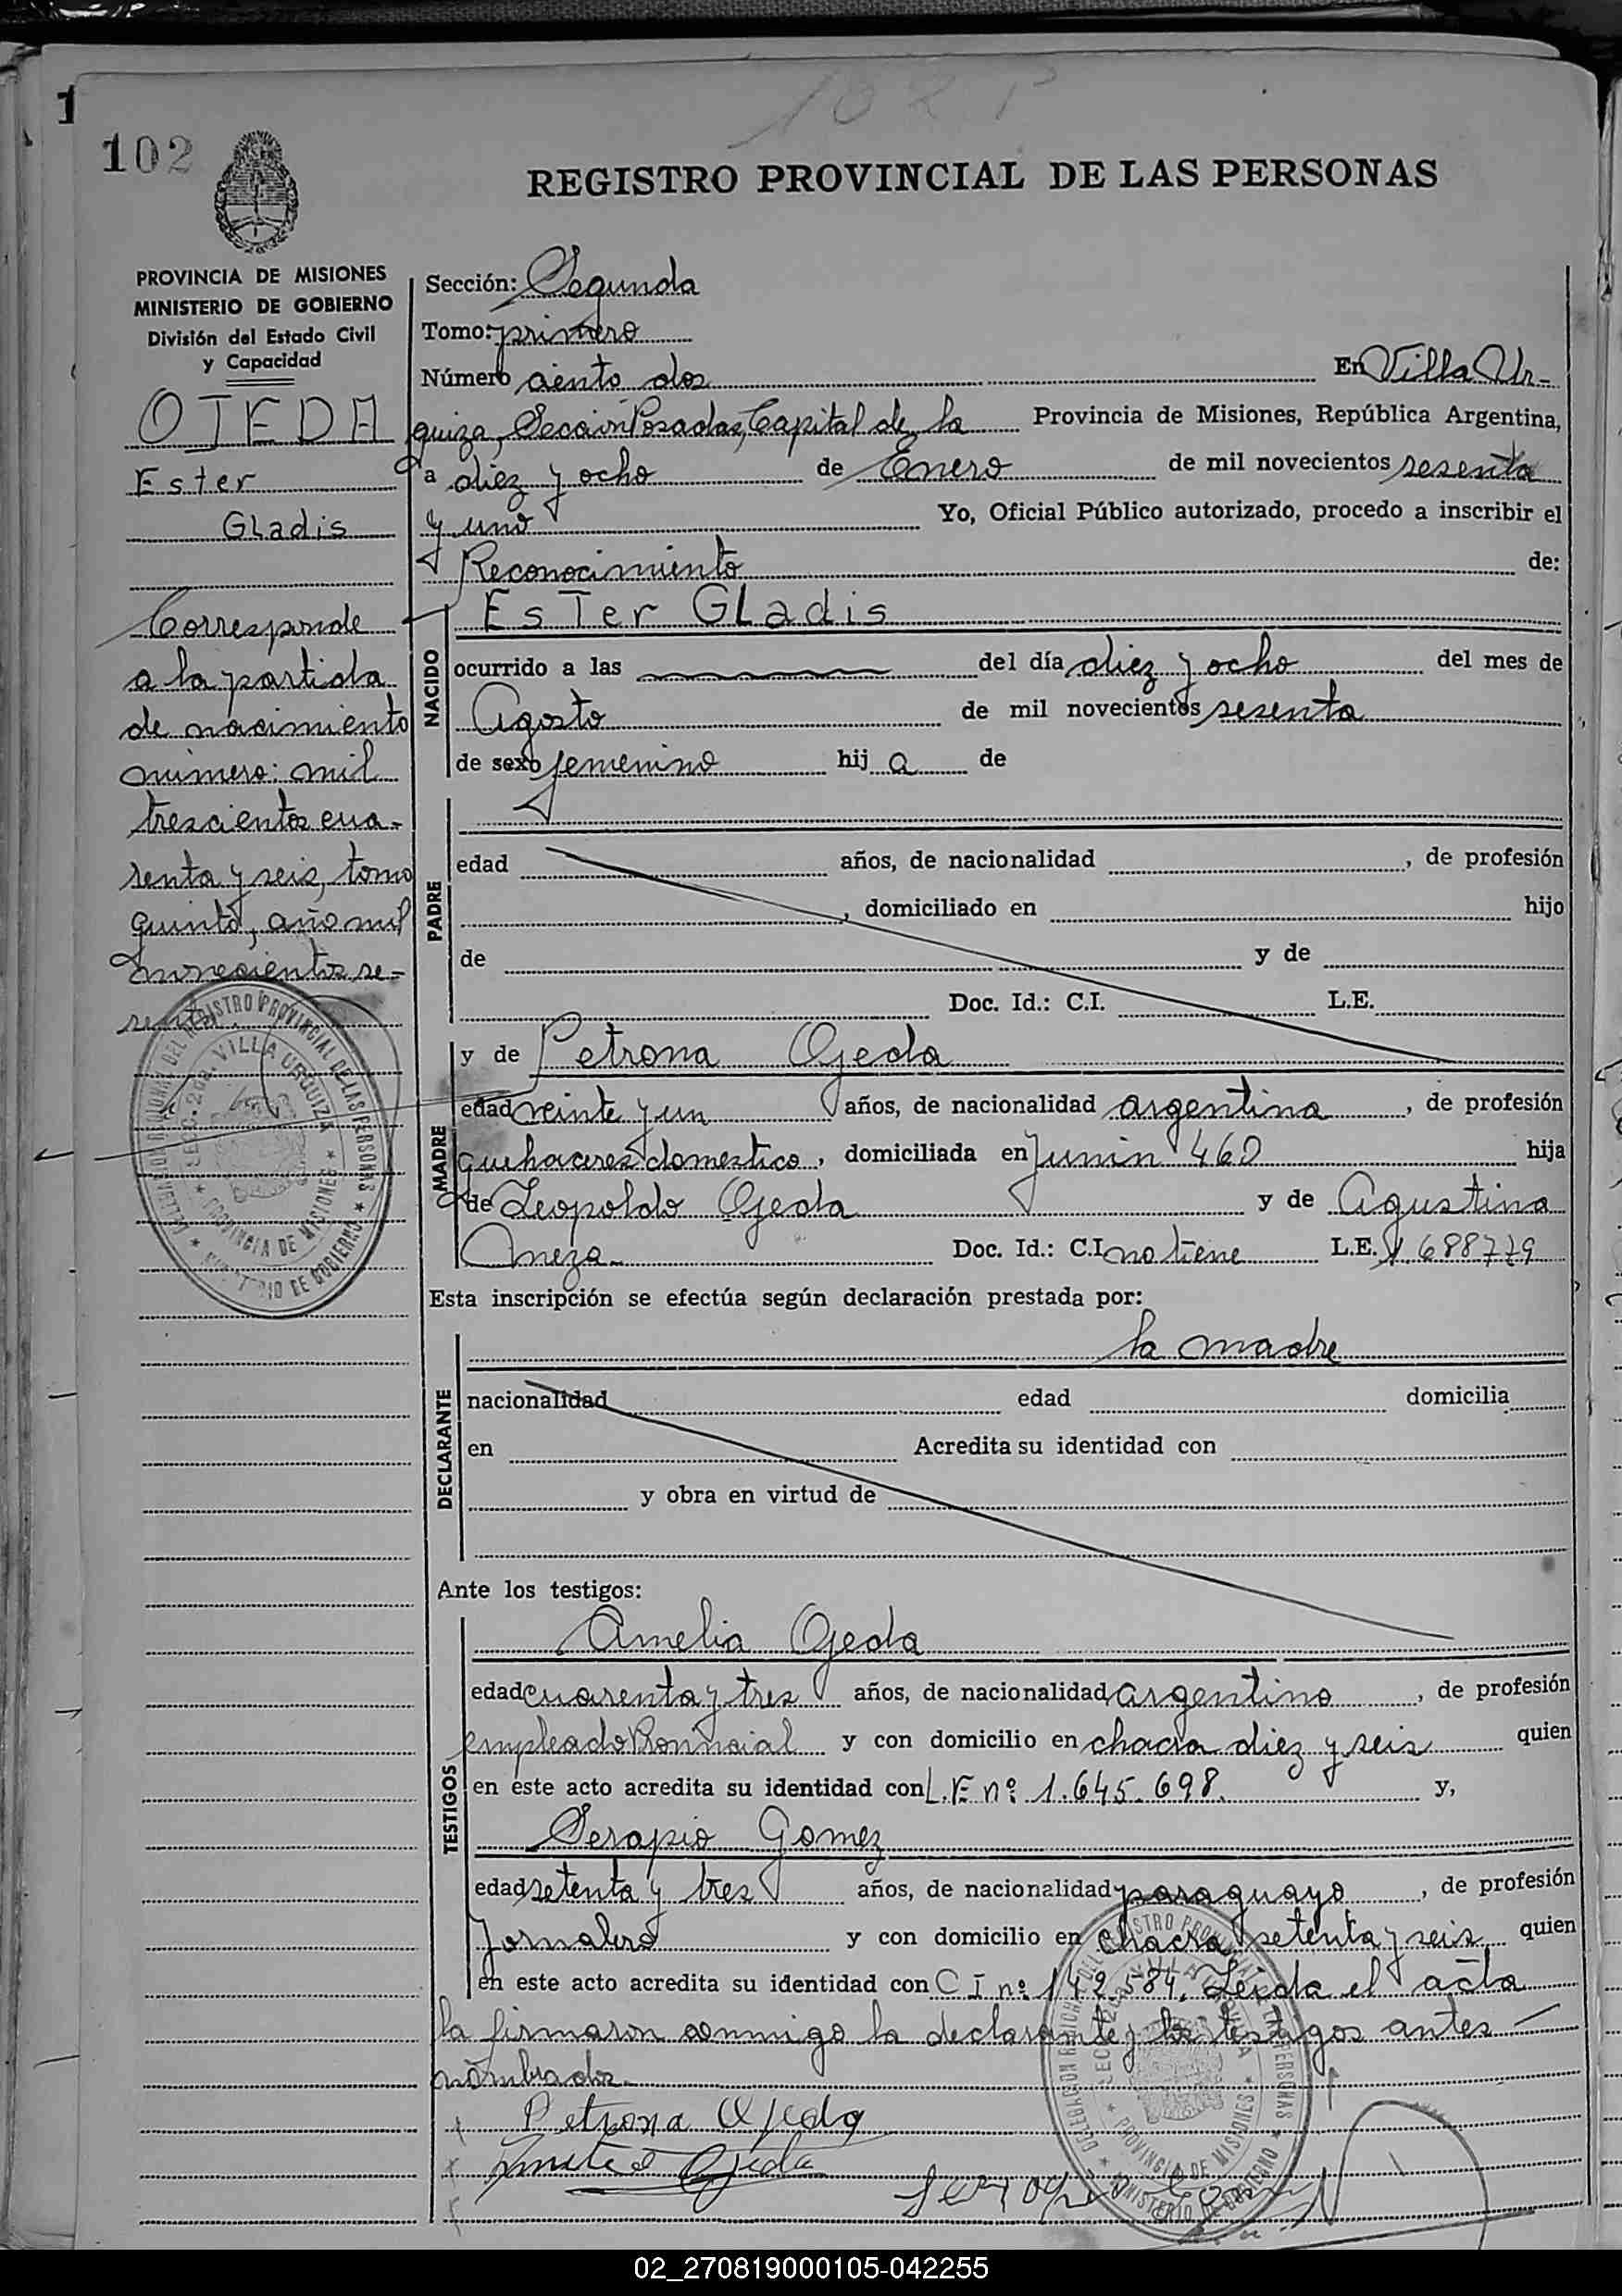 102 P
1
102
REGISTRO PROVINCIAL DE LAS PERSONAS
PROVINCIA DE MISIONES
MINISTERIO DE GOBIERNO
División del Estado Civil
y Capacidad
OJEDA
Ester
Gladis
Corresponde
a la partida
de nacimiento
número: mil
trescientos cua-
renta y seis, tomo
quinto, año mil
novecientos se-
senta.
Sección: Segunda
Tomo: primero
Número ciento dos En Villa Ur-
quiza, Sección Posadas, Capital de la Provincia de Misiones, República Argentina,
a diez y ocho de Enero de mil novecientos sesenta
y uno Yo, Oficial Público autorizado, procedo a inscribir el
Reconocimiento de:
NACIDO
EsTer GLadis
ocurrido a las del día diez y ocho del mes de
Agosto de mil novecientos sesenta
de sexo femenino hij a de
PADRE
edad años, de nacionalidad , de profesión
, domiciliado en hijo
de y de
Doc. Id.: C.I. L.E.
MADRE
y de Petrona Ojeda
edad veinte y un años, de nacionalidad argentina , de profesión
quehaceres domestico , domiciliada en Junin 460 hija
de Leopoldo Ojeda y de Agustina
Meza Doc. Id.: C.I. no tiene L.E. 688779
Esta inscripción se efectúa según declaración prestada por:
la madre
DECLARANTE
nacionalidad edad domicilia
en Acredita su identidad con
y obra en virtud de
Ante los testigos:
TESTIGOS
Amelio Ojeda
edad cuarenta y tres años, de nacionalidad argentino , de profesión
empleado Provincial y con domicilio en chacra diez y seis quien
en este acto acredita su identidad con L.E. nº 1.645.698. y,
Serapio Gomez
edad setenta y tres años, de nacionalidad paraguayo , de profesión
Jornalero y con domicilio en chacra setenta y seis quien
en este acto acredita su identidad con C I nº 142.584. Leida el acta
la firmaron conmigo la declarante y los testigos antes
nombrados.
Petrona Ojeda
Ojeda
DELEGACION REGIONAL DEL REGISTRO PROVINCIAL DE LAS PERSONAS
SECC. 2da. VILLA URQUIZA
PROVINCIA DE MISIONES
MINISTERIO DE GOBIERNO
02_270819000105-042255